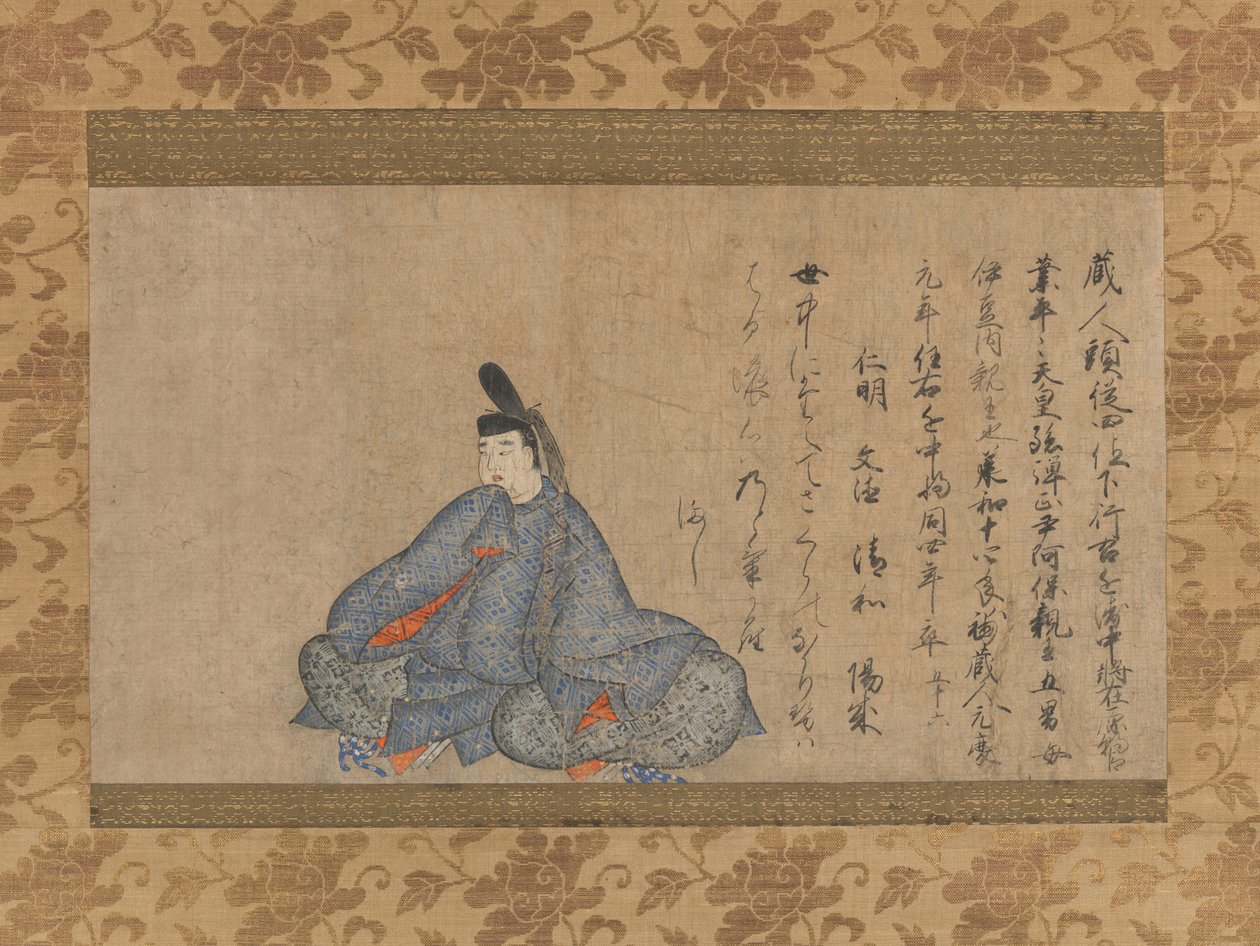 蔵人頭従四位下行右近衛中将在原朝臣
業平〻天皇孫弾正尹阿保親王五男母
伊豆内親王也承和十四年補蔵人元慶
元年任右近中将同四年卒五十六
仁明 文徳 清和 陽成
世中にたえてさくらのなかりせハ
はる濃心ハ乃とけから
まし